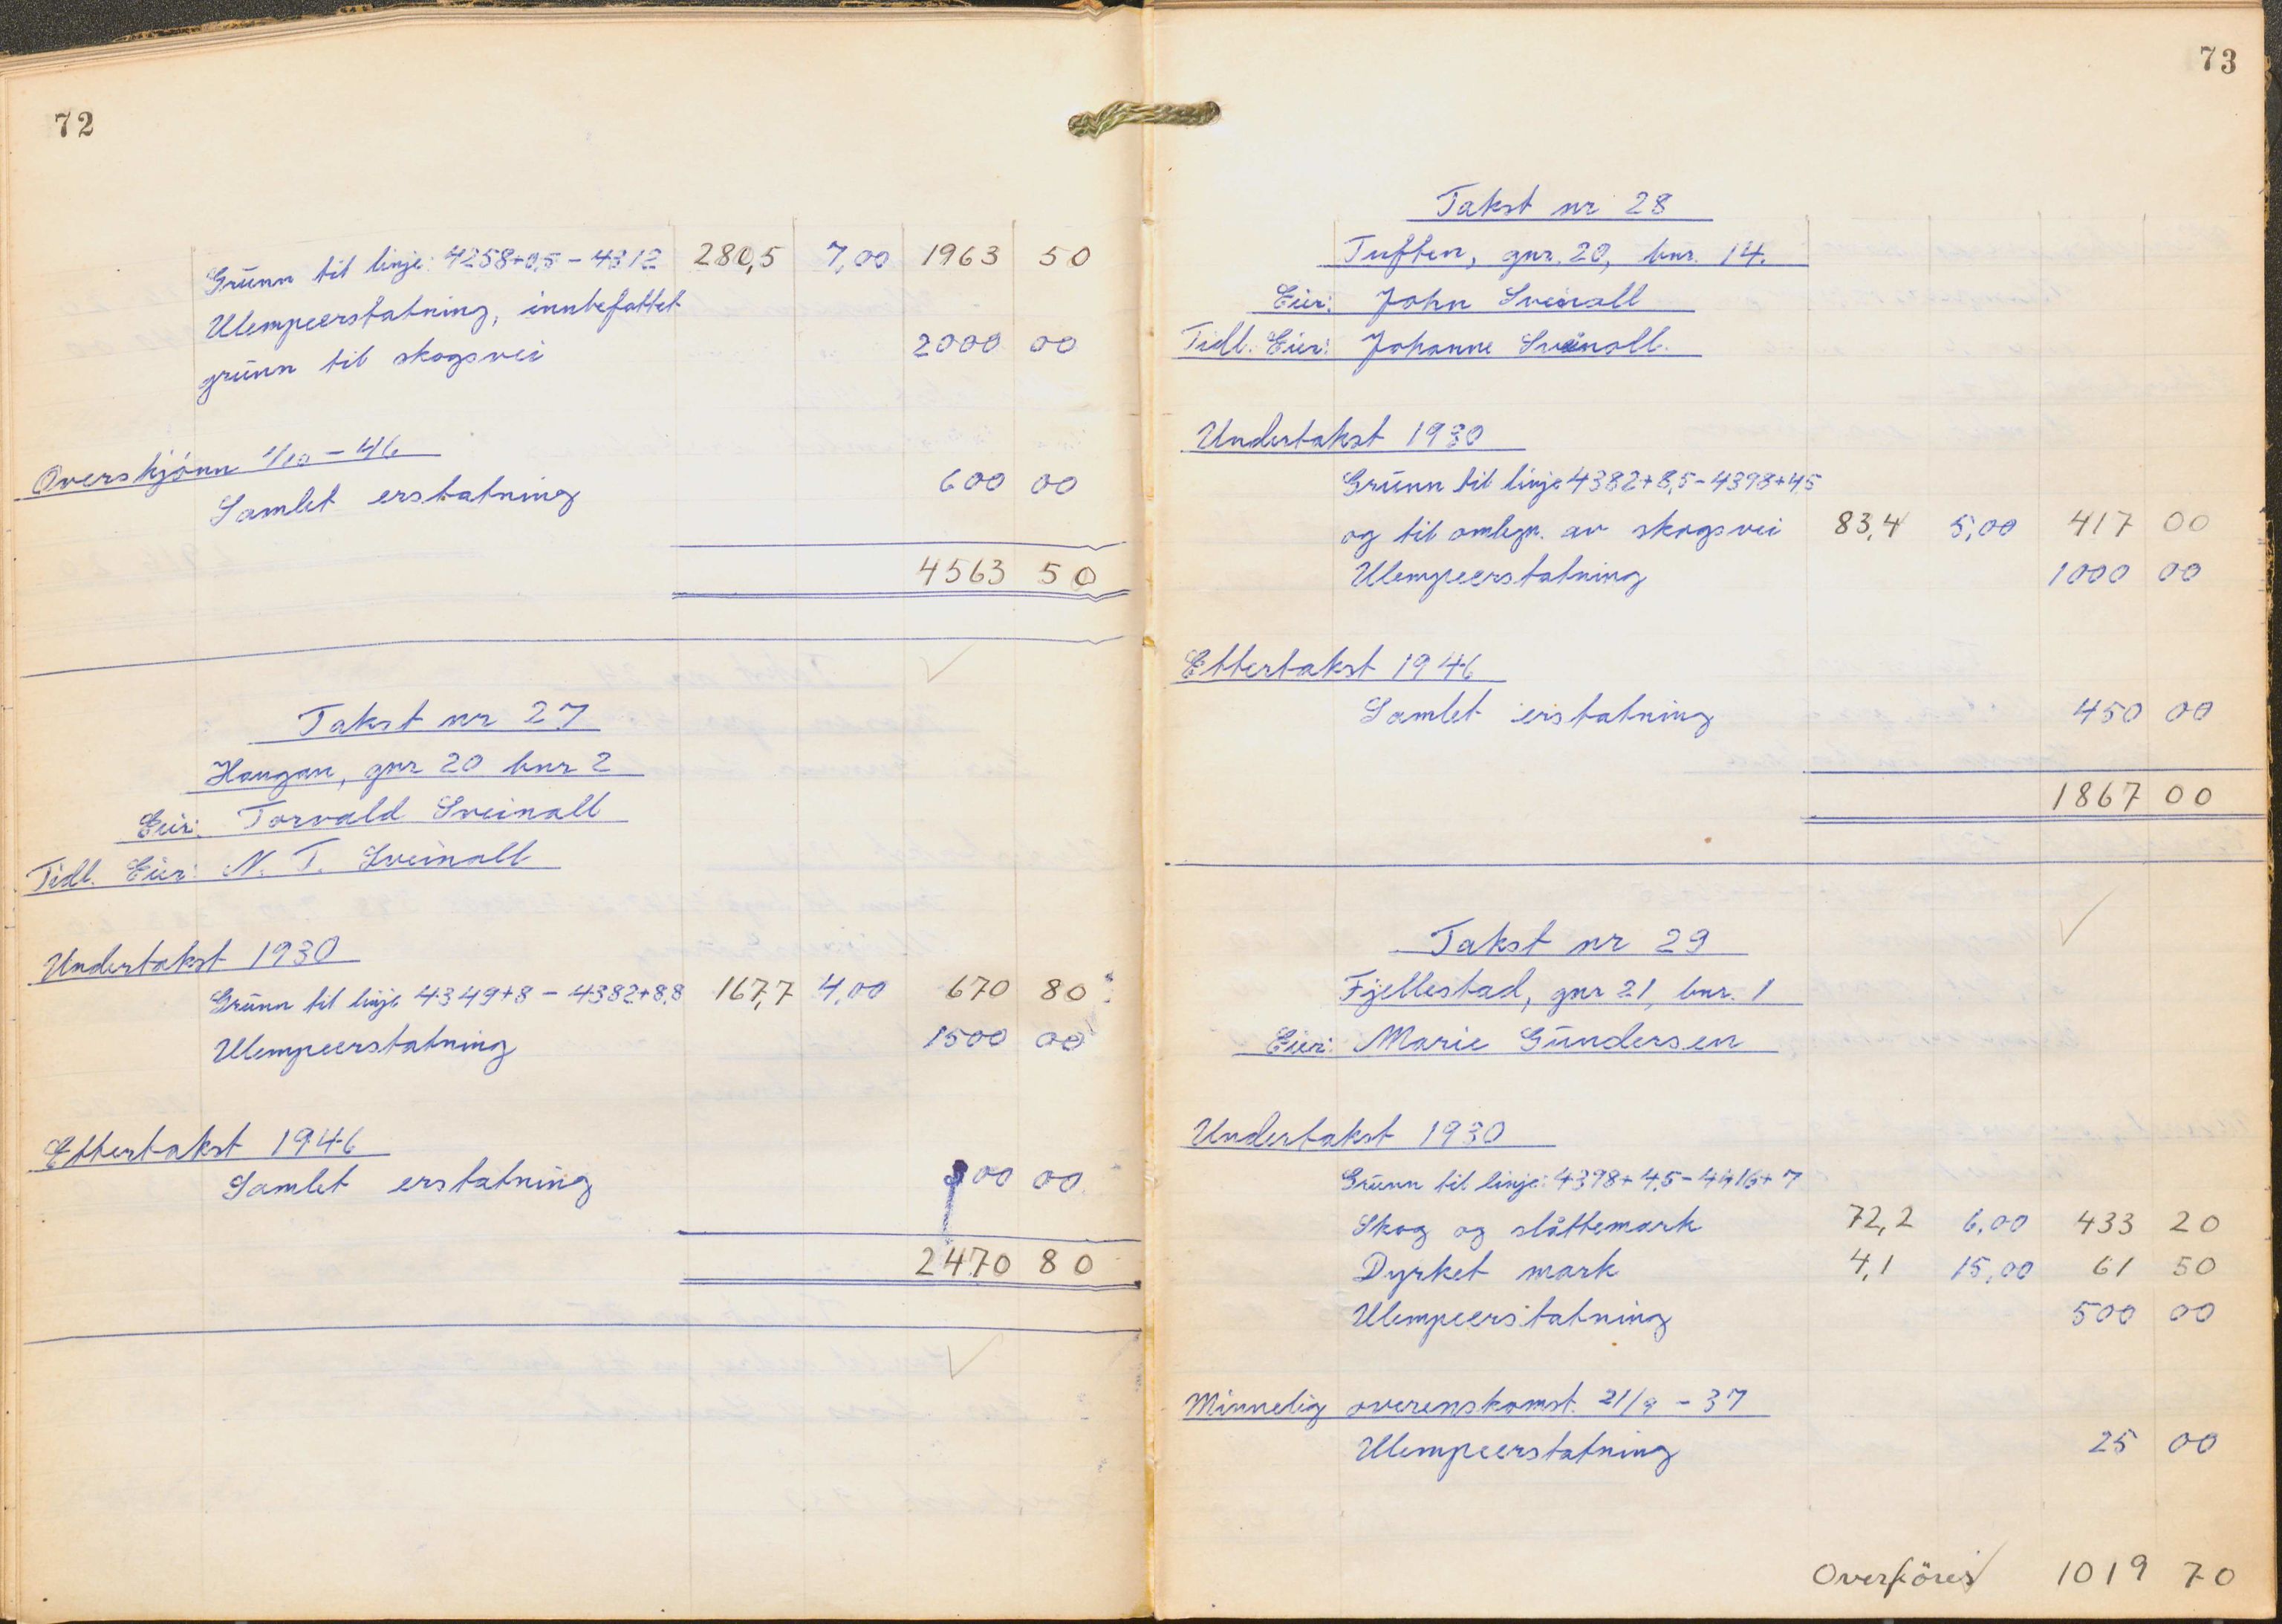 72
Grunn til linje: 4258+0,5 - 4312 280,5 7,00 1963 50
Ulempeerstatning, innbefattet
grunn til skogsvei 2000 00
Overskjønn 1/10 - 46
Samlet erstatning 600 00
4563 50
Takst nr 27
Haugan, gnr 20 bnr 2
Eier: Torvald Sveinall
Tidl. Eier: N. T. Sveinall
Undertakst 1930
Grunn til linje 4349+8 - 4382+8,8 167,7 4,00 670 80
Ulempeerstatning 1500 00
Ettertakst 1946
Samlet erstatning 300 00
2470 80
73
Takst nr 28
Tuften, gnr. 20, bnr. 14.
Eier: John Sveinall
Tidl. Eier: Johanne Sveinall.
Undertakst 1930
Grunn til linje 4382+8,5 - 4398+4,5
og til omlegn. av skogsvei 83,4 5,00 417 00
Ulempeerstatning 1000 00
Ettertakst 1946
Samlet erstatning 450 00
1867 00
Takst nr 29
Fjellestad, gnr 21, bnr. 1
Eier: Marie Gundersen
Undertakst 1930
Grunn til linje: 4398+4,5 - 4416+7
Skog og slåttemark 72,2 6,00 433 20
Dyrket mark 4,1 15,00 61 50
Ulempeerstatning 500 00
Minnelig overenskomst. 21/9 - 37
Ulempeerstatning 25 00
Overföres 1019 70